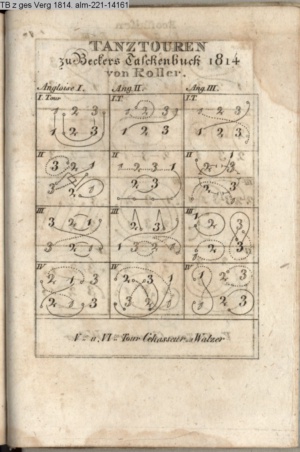 TB z ges Verg 1814. alm-221-14161
TANZTOUREN
zu Beckers Taschenbuch 1814
von Roller.
Angloise I. Ang. II. Ang. III.
I. Tour I.T. I.T.
1 2 3 1 2 3 1 2 3
1 2 3 1 2 3 1 2 3
II II II
3 2 1 2 3 1
3 2 1 2 3 2 3
III III III
3 2 1 2 3 2 3
3 2 1 1 3 2 3
IV IV IV
2 1 3 2 3 1 1 2 3
2 3 3 2 1 1 2 3
V = u. VI = Tour Chasseur u. Walzer